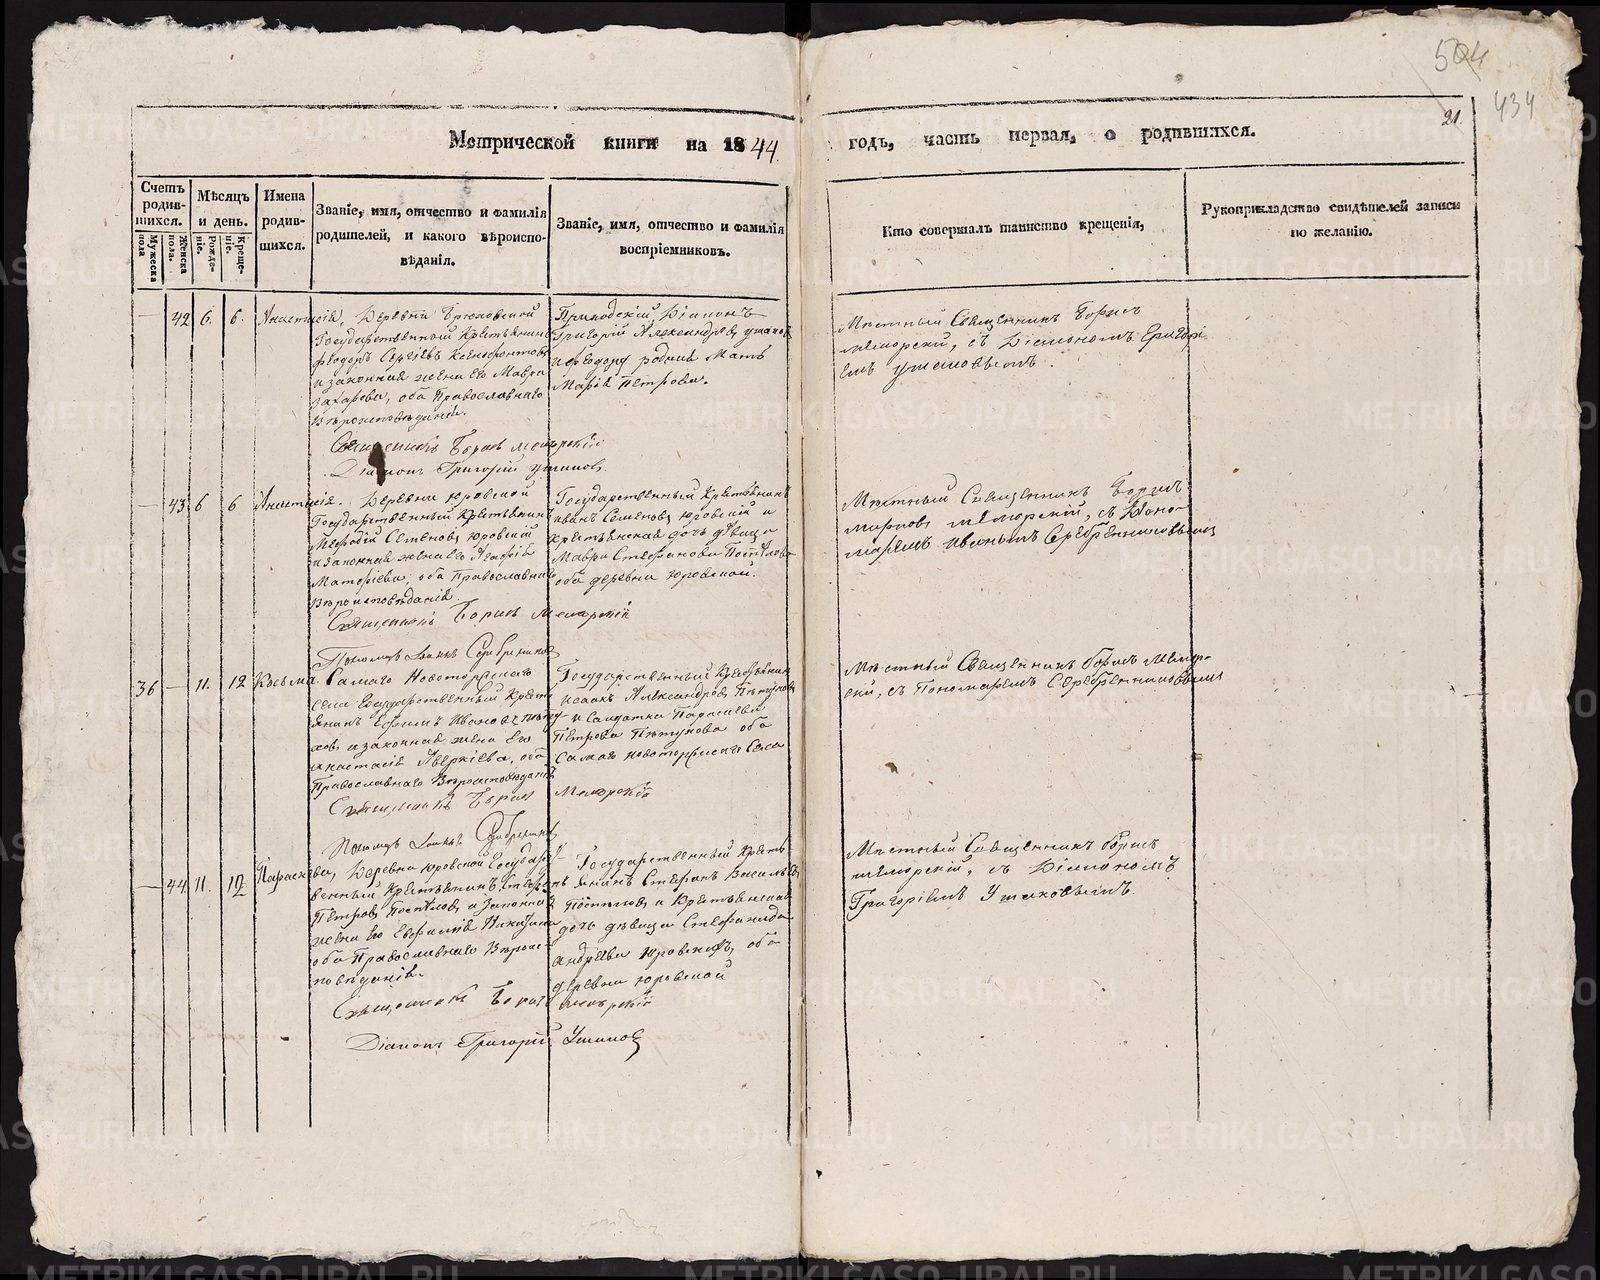 504
434
21.
Метрической книги на 1844. годъ, часть первая, о родившихся.
Счетъ родив-шихся.
Мужеска пола
Женска пола.
Мѣсяцъ и день.
Рожде-ніе.
Креще-ніе.
Имена родив-шихся.
Званіе, имя, отчество и фамилія
родителей, и какого вѣроиспо-
вѣданія.
Званіе, имя, отчество и фамилія
воспріемниковъ.
Кто совершалъ таинство крещенія,
Рукоприкладство свидѣтелей записи
по желанію.
— 42 6. 6. Анастасія, Деревни
Государственный Крестьянинъ
Ѳеодоръ Сергѣевъ Ксенофонтовъ
и законная жена его Мавра
Захарова, оба Православнаго
Вѣроисповѣданія.
Приходскій Діаконъ
Григорій Александровъ Ушаковъ
и Ѳеодору родная Мать
Марія Петрова.
Мѣстный Священникъ Борисъ
съ Діакономъ Григорі-
емъ Ушаковымъ.
Священникъ Борисъ
Діаконъ Григорій Ушаковъ
— 43 6 6 Анастасія. Деревни Юровской
Государственный Крестьянинъ
Меѳодій Семеновъ Юровскій
и законная жена его
оба Православнаго
Вѣроисповѣданія.
Государственный Крестьянинъ
Иванъ Семеновъ Юровскій и
крестьянская дочь дѣвица
Мавра Стефанова Поспѣлова
оба деревни Юровской.
Мѣстный Священникъ Борисъ
съ Поно-
маремъ Иваномъ Серебренниковымъ
Священникъ Борисъ
36 — 11. 12 Косьма Самаго Новоторжскаго
села Государственный Кресть-
янинъ Ефимъ Ивановъ Пѣту-
ховъ и законная жена его
Анастасія оба
Православнаго Вѣроисповѣданія
Государственный Крестьянинъ
Исаакъ Александровъ Пѣтуховъ
и Салдатка Параскева
Петрова Пѣтухова оба
Самаго Новоторжскаго Села
Мѣстный Священникъ Борисъ
съ Пономаремъ Серебренниковымъ
Священникъ Борисъ
— 44 11. 12 Параскева, Деревни Юровской Государст-
венный Крестьянинъ Стефанъ
Петровъ Поспѣловъ и законная
жена его Евфимія
оба Православнаго Вѣроис-
повѣданія.
Государственный Кресть-
янинъ Стефанъ Васильевъ
Поспѣловъ и Крестьянская
дочь дѣвица Стефанида
Андреева Юровскихъ, оба
деревни Юровской
Мѣстный Священникъ Борисъ
съ Діакономъ
Григоріемъ Ушаковымъ.
Священникъ Борисъ
Діаконъ Григорій Ушаковъ
METRIKI.GASO-URAL.RU